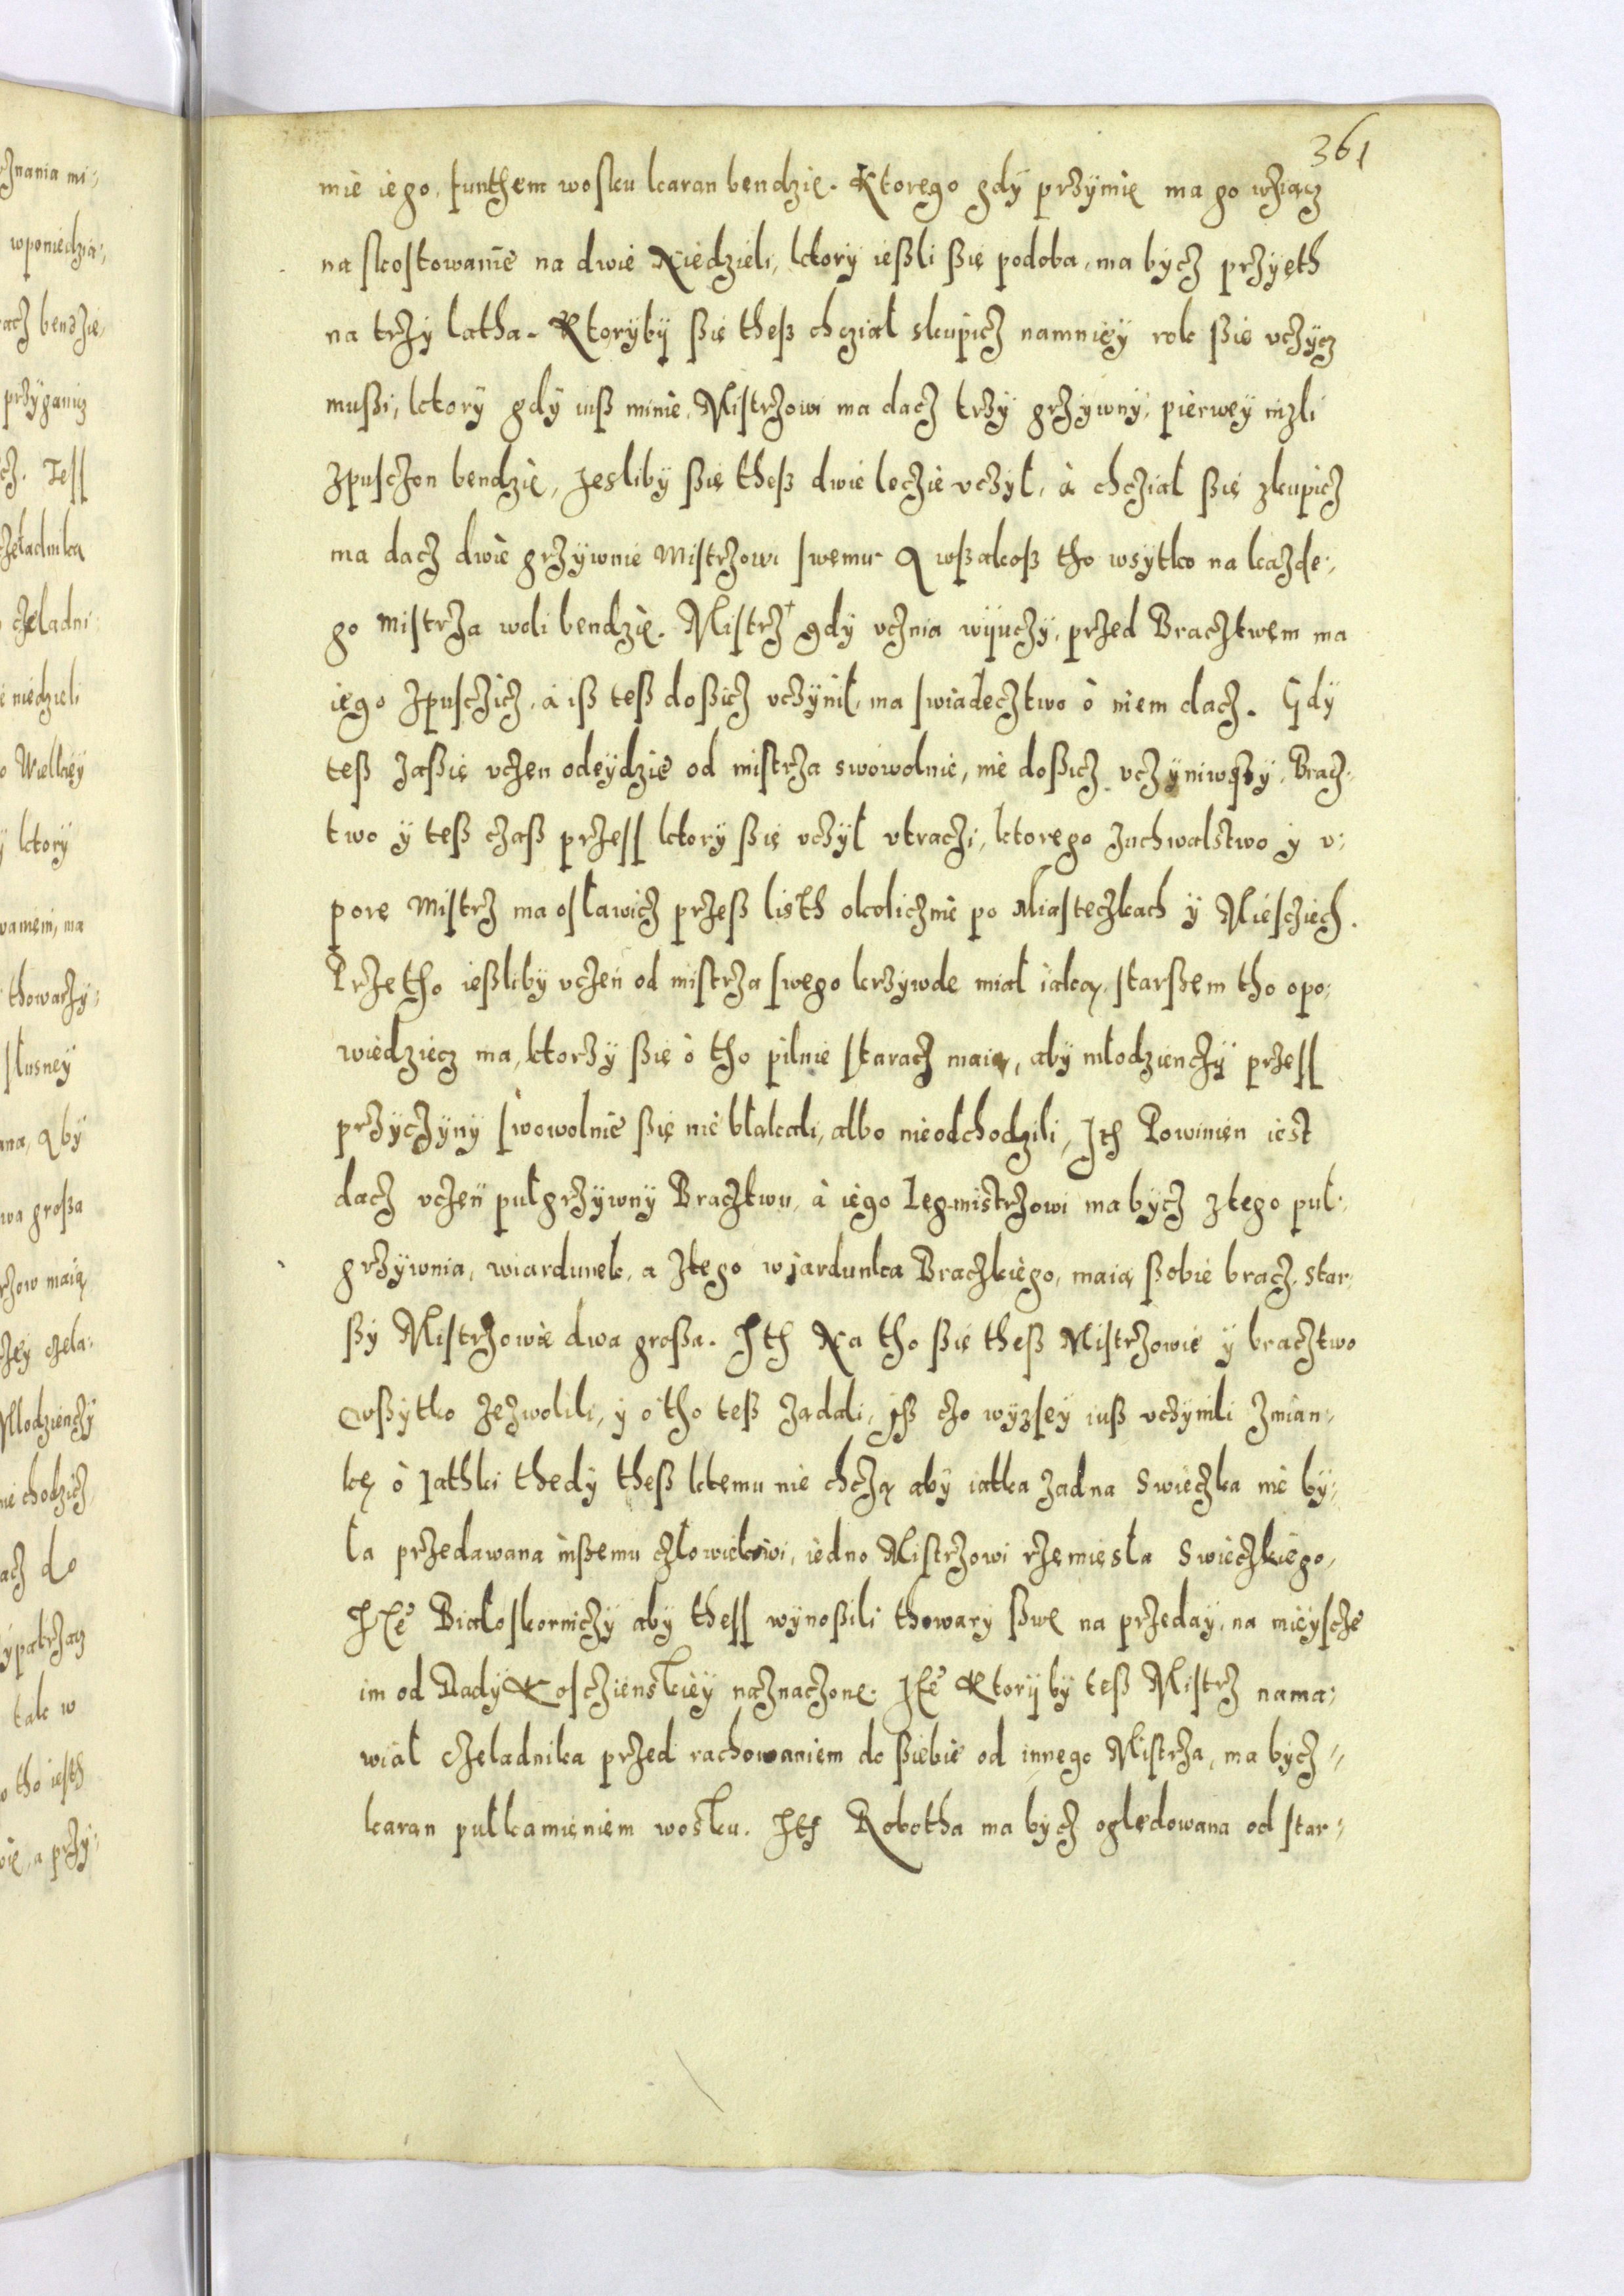 361
mie iego, funthem wosku karan bendzie. Ktorego gdÿ przÿmie ma go wżiącz
na skostowanie na dwie Niedzieli, ktorÿ ießli ßię podoba, ma bÿcz przÿęth
na trzÿ latha. Ktorÿbÿ ßię theß chcział skupicz namnieÿ rok ßię vczÿcz
mußi, ktorÿ gdÿ iuß minie, Mistrzowi ma dacz trzÿ grzÿwnÿ, pierweÿ nizli
zpusczon bendzie, Jeslibÿ ßię theß dwie leczie vczÿł, à chcział ßię zkupicz
ma dacz dwie grzÿwnie Mistrzowi swemu. A wßakoß tho wsÿtko na kazde,
go mistrza woli bendzie. Mistrz gdÿ vcznia wÿuczÿ, przed Bracztwem ma
iego zpusczicz, à iß teß doßicz vczÿnił, ma swiadecztwo ò niem dacz. Gdÿ
teß zaßię vczen odeÿdzie od mistrza swowolnie, nie doßicz vczÿniwszÿ, Bracz,
two ÿ teß czaß przess ktorÿ ßię vczÿł vtraczi, ktorego zuchwalstwo ÿ v,
porę Mistrz ma osławicz przeß listh okolicznie po Miasteczkach ÿ Miesciech.
Przetho ießlibÿ vczeń od mistrza swego krzÿwde miał iaką, starßem tho opo,
wiedziecz ma, ktorzÿ ßię ò tho pilnie staracz maią, abÿ młodzienczÿ przess
przÿczÿnÿ swowolnie ßię nie błakali, albo nieodchodzili, Ith Powinien iest
dacz vczeń pułgrzÿwnÿ Bracztwu, à iego Legmistrzowi ma bÿcz ztego puł,
grzÿwnia, wiardunek, a ztego wjardunka Braczkiego, maią ßobie bracz, star,
ßÿ Mistrzowie dwa großa. Ith Na tho ßię theß Mistrzowie ÿ bracztwo
wßÿtko zezwolili, ÿ o tho teß zadali, iß czo wÿzseÿ iuß vczÿnili zmian,
kę ò Jathki thedÿ theß ktemu nie chczą abÿ iatka zadna Swieczka nie bÿ,
ła przedawana inßemu człowiekowi, iedno Mistrzowi rzemięsła Swieczkiego,
Ite Białoskorniczÿ abÿ thess wÿnoßili thowarÿ ßwe na przedaÿ, na mieÿscze
im od Radÿ Kosczienskieÿ naznaczone. Ite Ktorÿbÿ teß Mistrz nama,
wiał czeladnika przed rachowaniem do ßiebie od innego Mistrza, ma bÿcz
karan pułkamieniem wosku. Ith Robotha ma bÿcz oględowana od star,